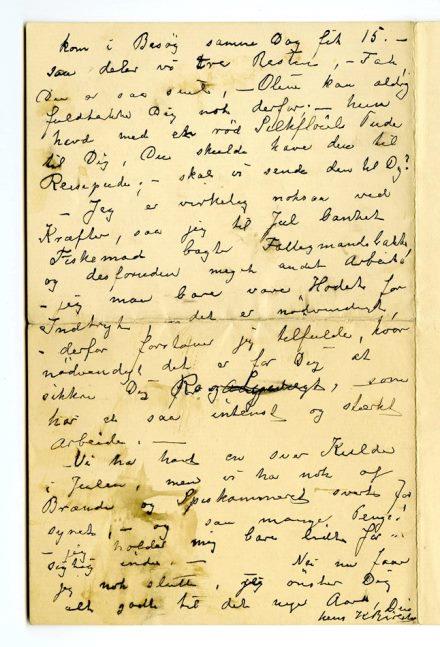 kom i Besøg samme Dag fik 15. —
saa deler vi tre Resten, — Tak!
Du er saa snil, — Oline kan aldrig
fuldtakke Dig nok derfor. — hun
havd med en rød Silkfløiels Pude
til Dig, Du skulde have den til
Reisepude, — skal vi sende den til Dig?
— Jeg er virkelig noksaa ved
Kræfter, saa jeg til Jul banket
Fiskemad bagte Fattigmandsbakkels
og desforuden meget andet Arbeide!
— jeg maa bare vare Hodet for
Indtryk, — det er nødvendigt,
— derfor forstaaer jeg tilfulde, hvor
nødvendigt det er for Dig at
sikkre Dig Ro, som
har et saa intenst og stærkt
Arbeide. —
— Vi ha havt en svær Kulde
i Julen, men vi ha nok af
Brænde og Spiskammeret svart for
synet, — og saa mange Penge!
— jeg holder mig bare lidt for
inde. — Nei nu faar
jeg nok slutte, jeg ønsker Dig
alt godt til det nye Aar! Din
hens